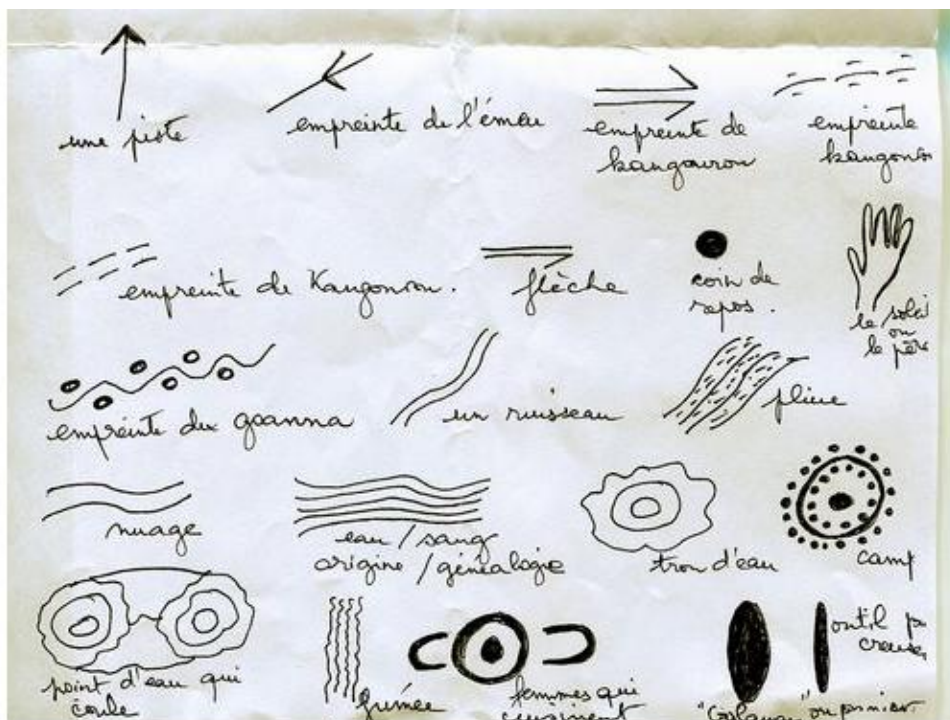 une piste
empreinte de l'émeu
empreinte de
kangourou
empreinte
kangourou
empreinte de Kangourou.
flèche
coin de
repos.
le soleil
ou
le père
empreinte du goanna
un ruisseau
pluie
nuage
eau / sang
origine / généalogie
trou d'eau
camp
point d'eau qui
coule
fumée
femmes qui
outil
ou panier